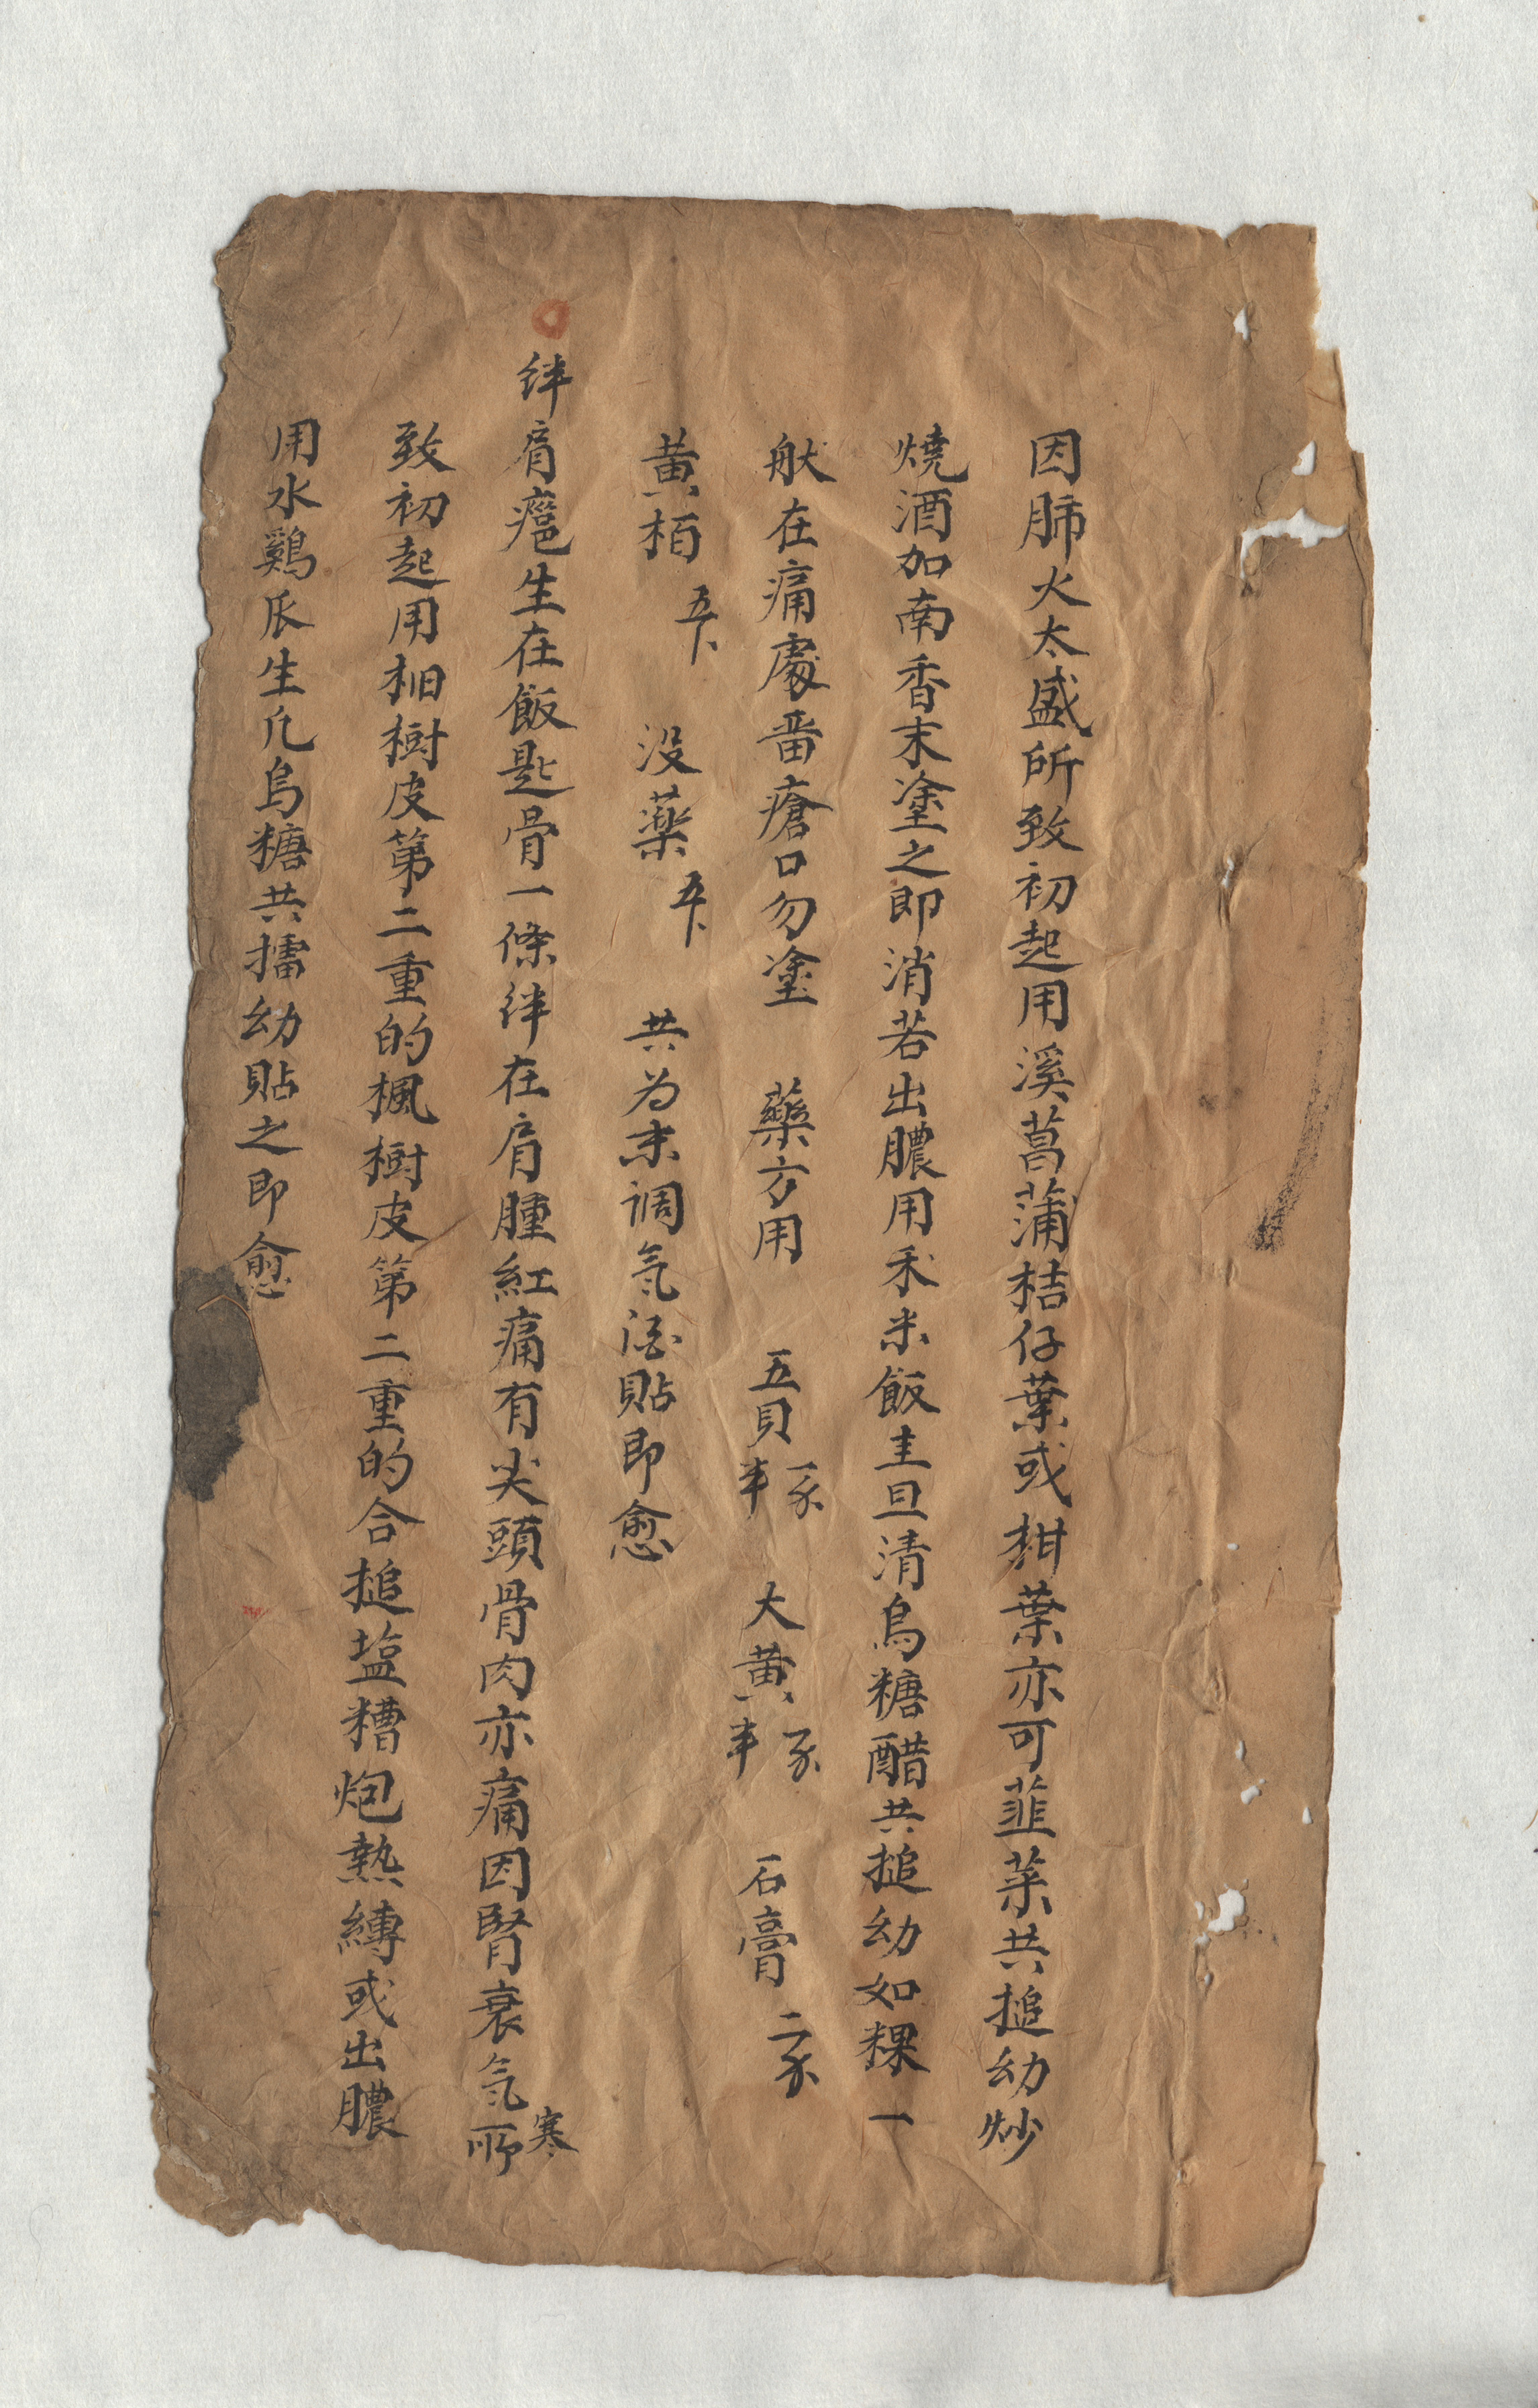 因肺火太盛所致初起用溪菖蒲桔仔葉或柑葉亦可韮菜共搥幼炒
燒酒加南香末塗之即消若出膿用禾米飯圭旦清烏糖醋共搥幼如粿一
般在痛處畨瘡口勿塗 藥方用 五貝 大黃 石膏
黃栢 没薬 共为末調氣酒貼即愈
絆肩癰生在飯匙骨一條絆在肩腫紅痛有尖頭骨肉亦痛因腎衰氣寒所
致初起用桕樹皮第二重的楓樹皮第二重的合搥塩糟炮熱縛或出膿
用水鷄爪生几烏糖共擂幼貼之即愈